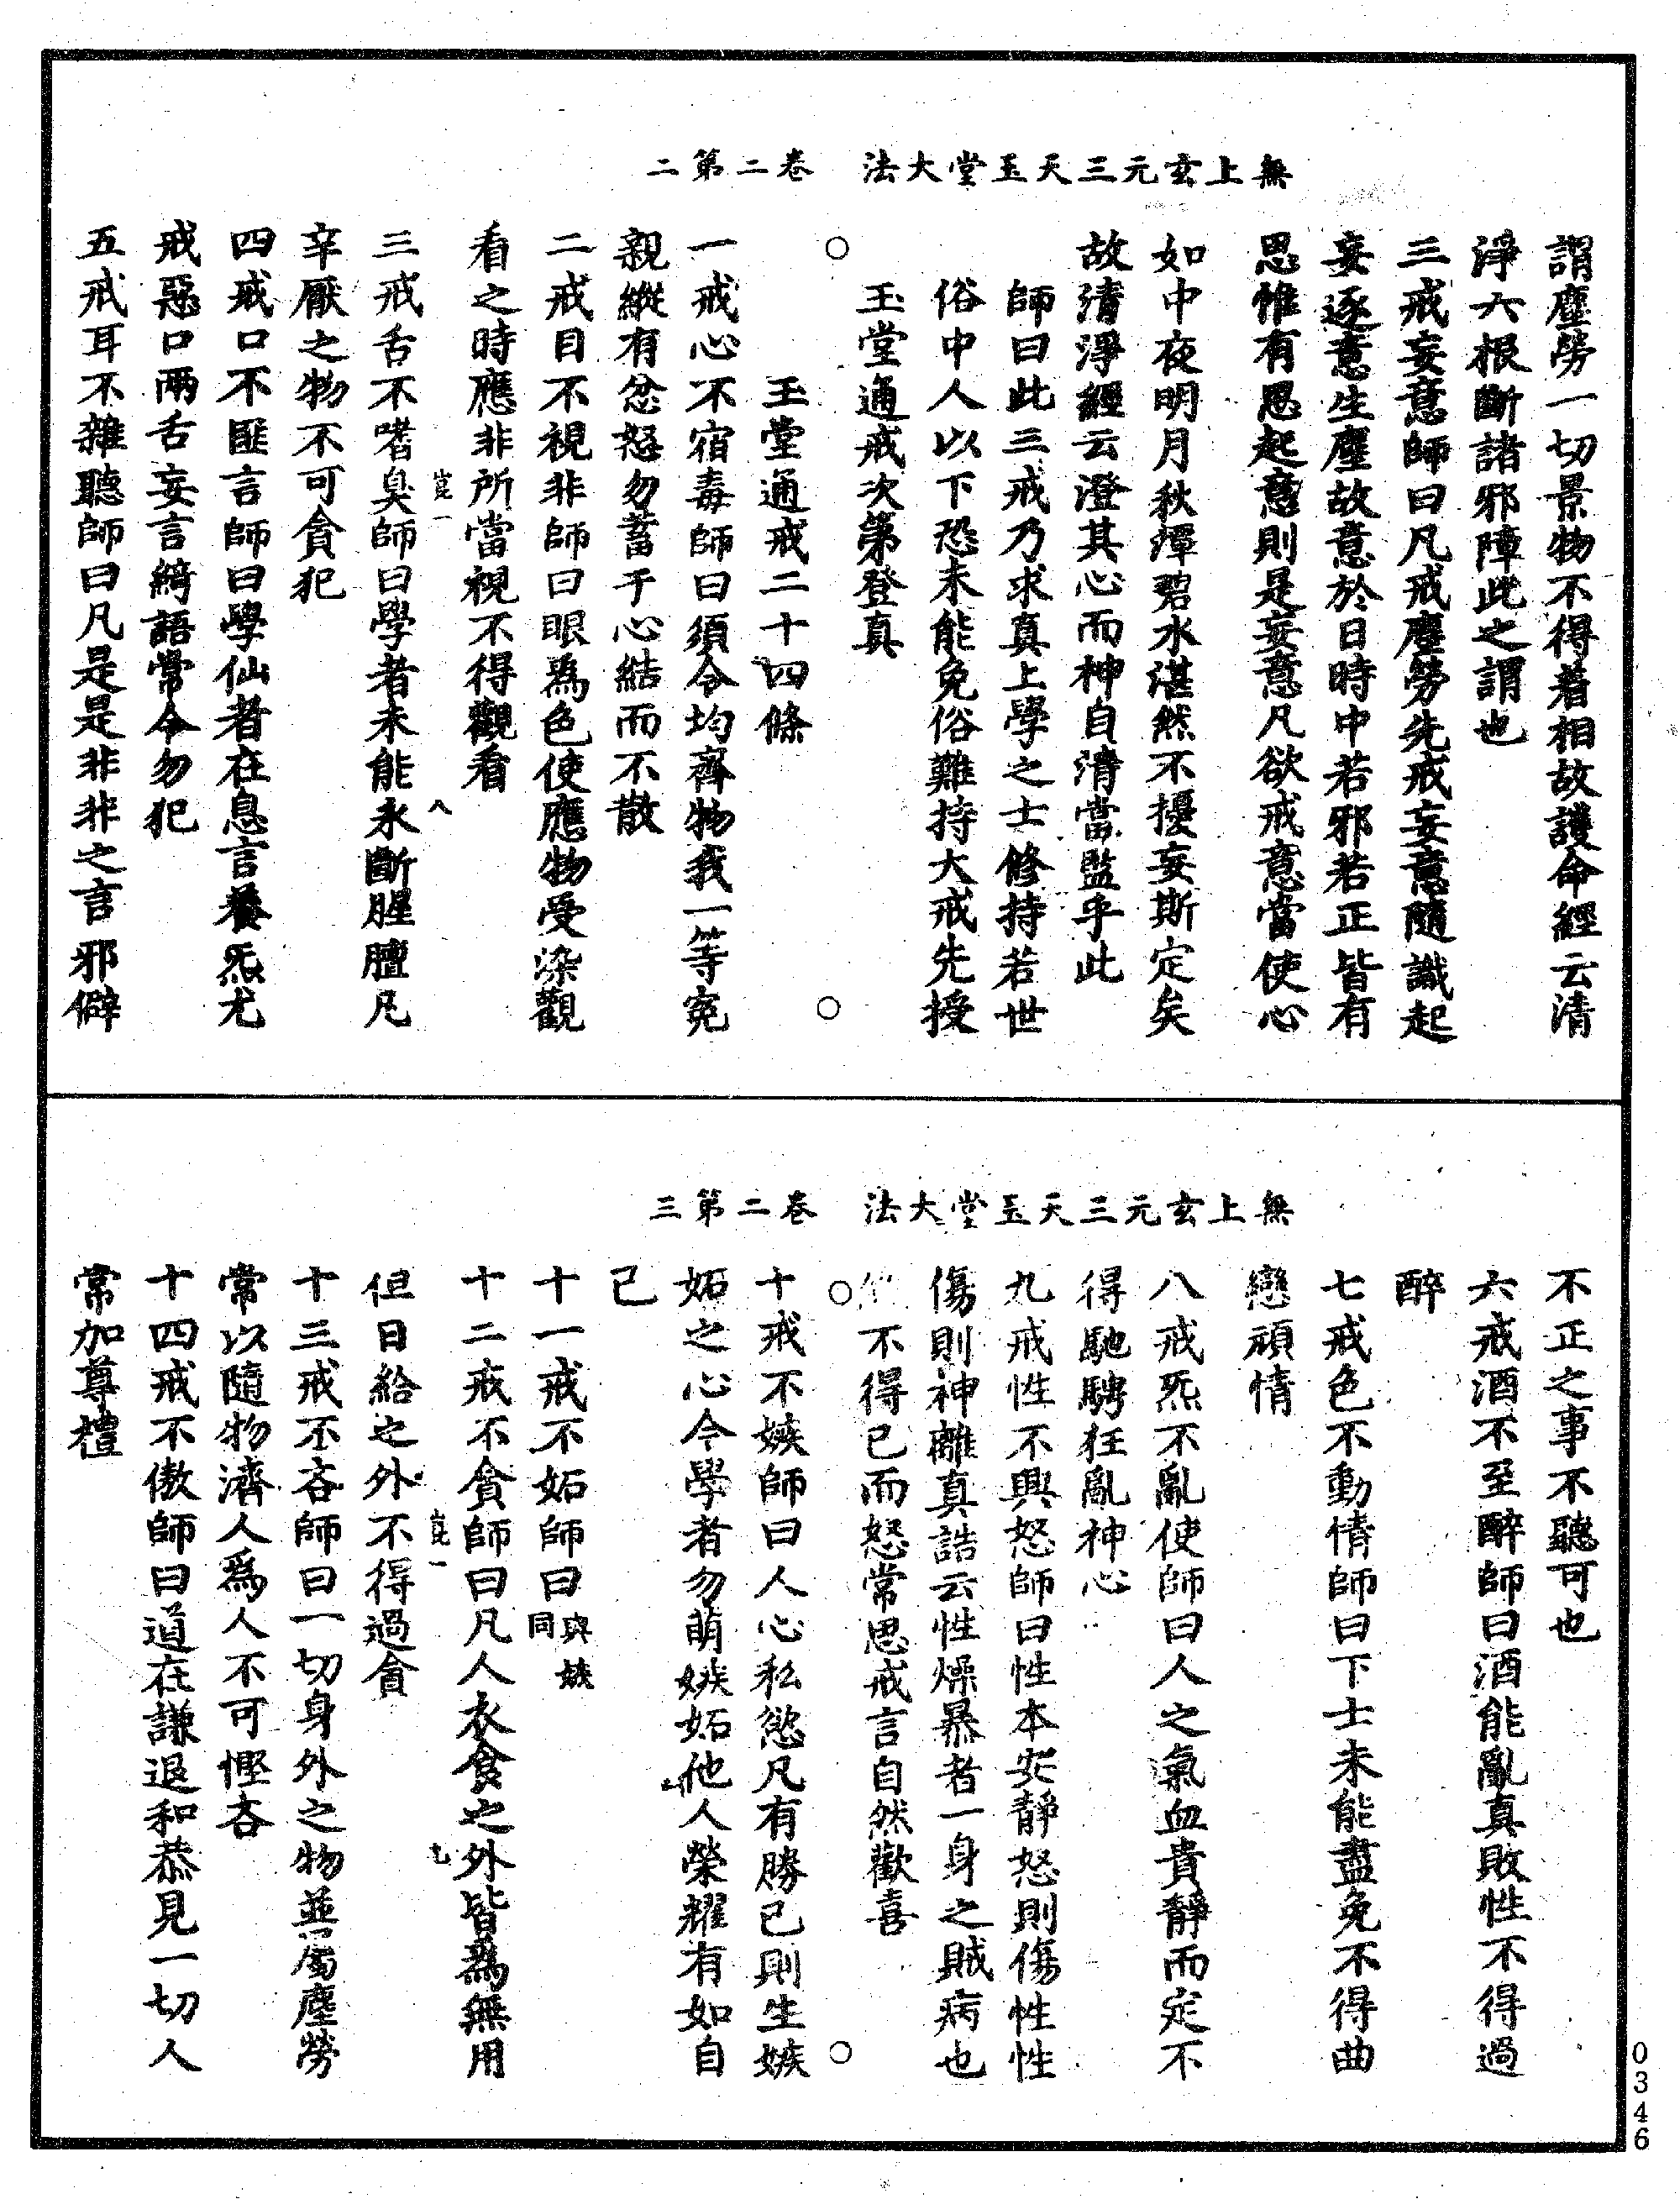 無上玄元三天玉堂大法　卷二第二
謂塵勞一切景物不得着相故護命經云清
淨六根斷諸邪障此之謂也
三戒妄意師曰凡戒塵勞先戒妄意隨識起
妄逐意生塵故意於日時中若邪若正皆有
思惟有思起意則是妄意凡欲戒意當使心
如中夜明月秋潭碧水湛然不擾妄斯定矣
故清淨經云澄其心而神自清當監乎此
師曰此三戒乃求真上學之士修持若世
俗中人以下恐未能免俗難持大戒先授
玉堂通戒次第登真
玉堂通戒二十四條
一戒心不宿毒師曰須令均齊物我一等寃
親縱有忿怒勿蓄于心結而不散
二戒目不視非師曰眼爲色使應物受染觀
看之時應非所當視不得觀看
三戒舌不嗜臭師曰學者未能永斷腥膻凡
辛厭之物不可貪犯
四戒口不匪言師曰學仙者在息言養炁尤
戒惡口兩舌妄言綺語常令勿犯
五戒耳不雜聽師曰凡是是非非之言邪僻
八
無上玄元三天玉堂大法　卷二第三
不正之事不聽可也
六戒酒不至醉師曰酒能亂真敗性不得過
醉
七戒色不動情師曰下士未能盡免不得曲
戀頑情
八戒炁不亂使師曰人之氣血貴靜而定不
得馳騁狂亂神心
九戒性不興怒師曰性本安靜怒則傷性性
傷則神離真誥云性燥暴者一身之賊病也
不得已而怒常思戒言自然歡喜
十戒不嫉師曰人心私慾凡有勝己則生嫉
妬之心令學者勿萌嫉妬他人榮耀有如自
己
十一戒不妬師曰與嫉同
十二戒不貪師曰凡人衣食之外皆爲無用
但日給之外不得過貪
十三戒不吝師曰一切身外之物並屬塵勞
常以隨物濟人爲人不可慳吝
十四戒不傲師曰道在謙退和恭見一切人
常加尊禮
九
0346